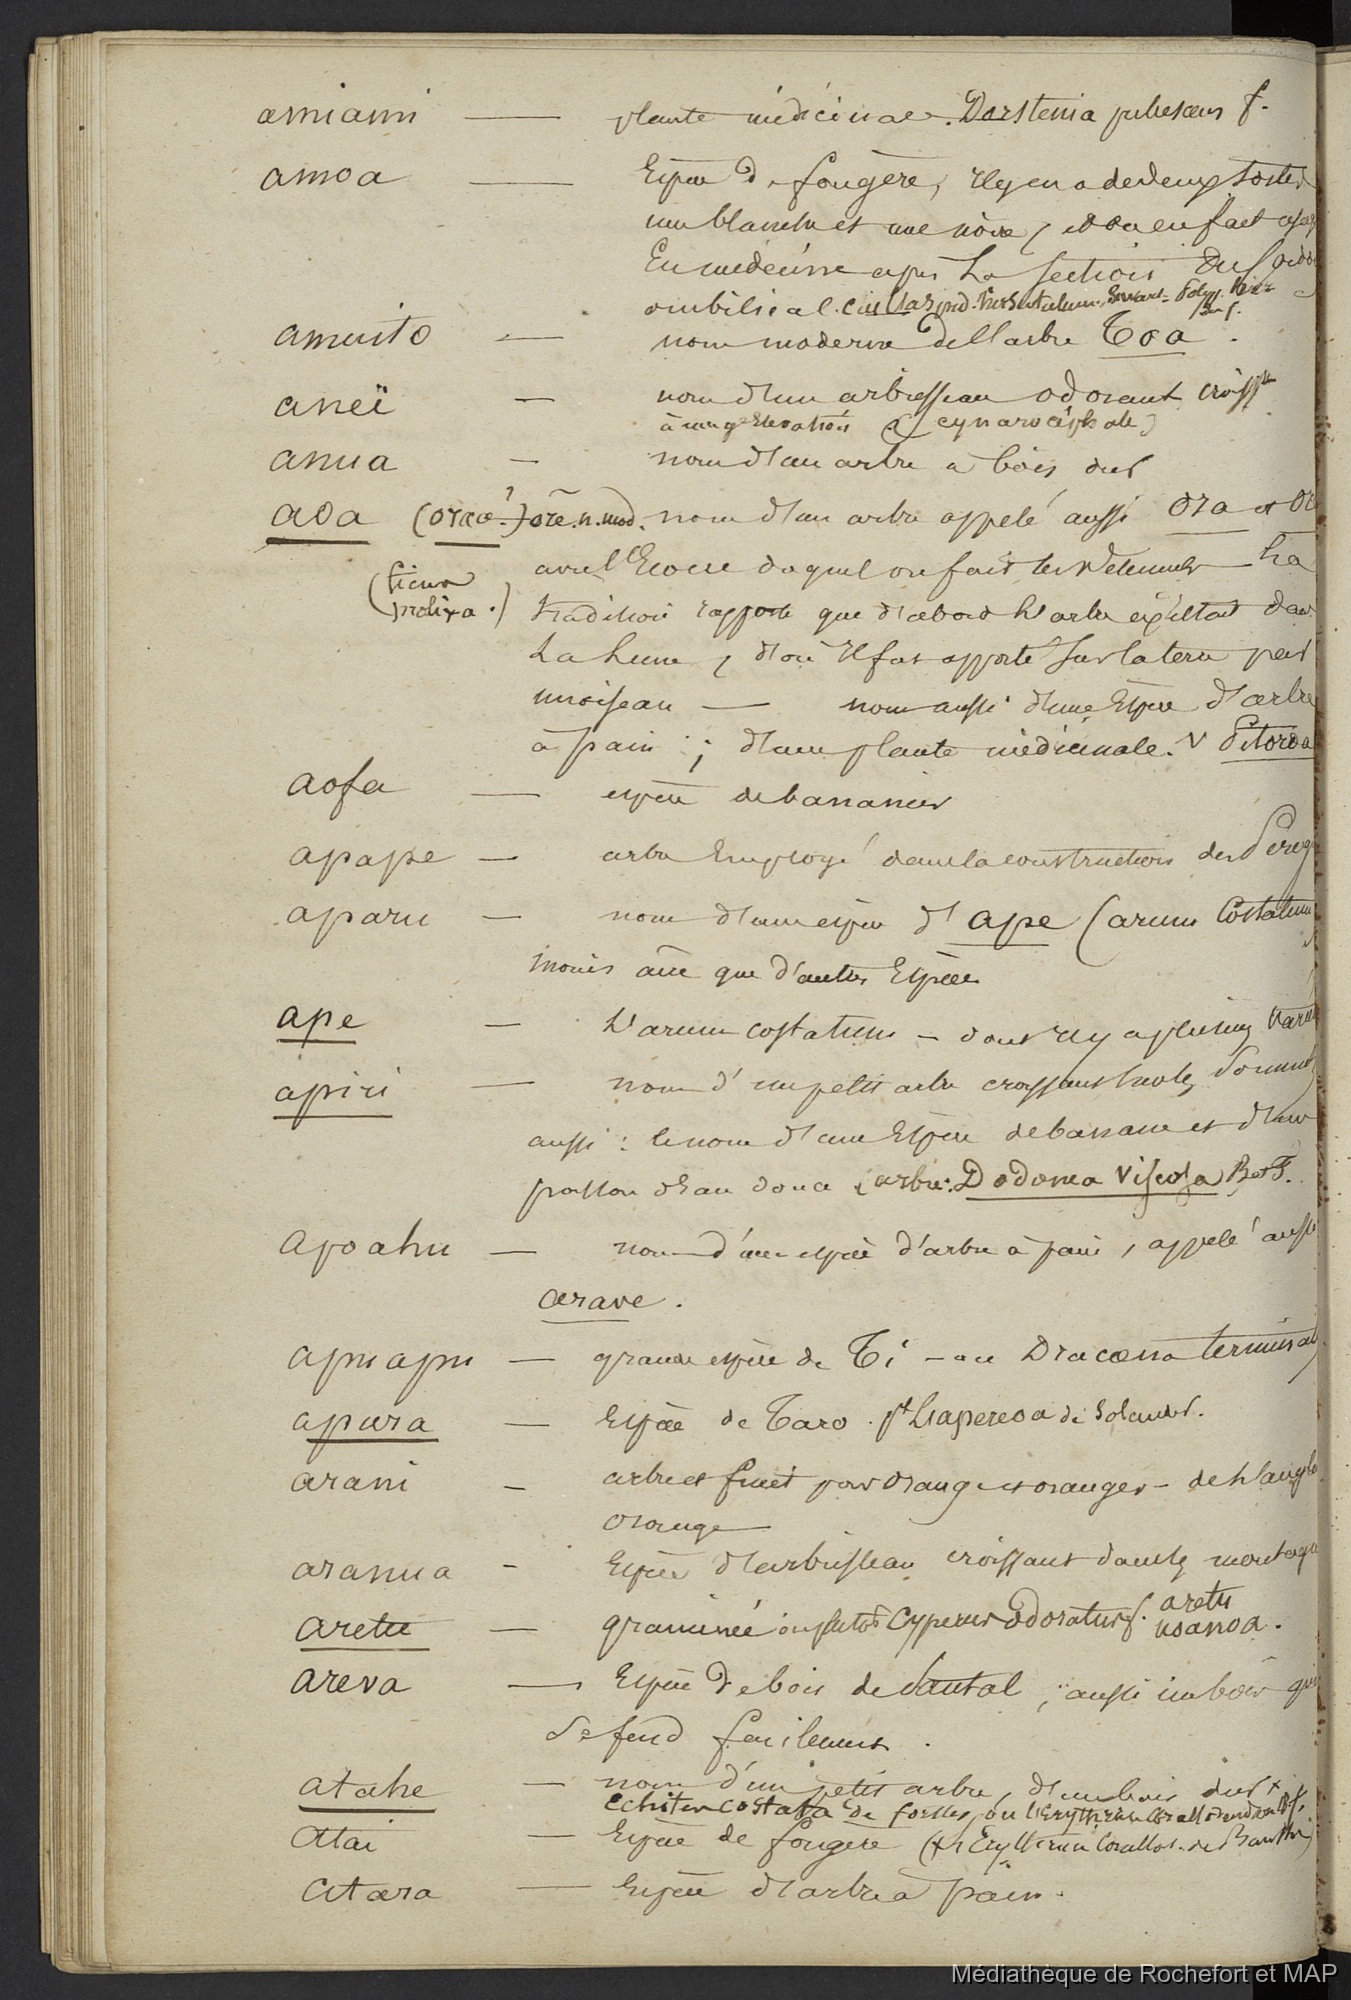 amiami — plante médicinale. Dorstenia pubescens f.
amoa — Espece de fougère, il y en a de deux sortes
une blanche et une noire, et on en fait usage
En médecine apres la section du Cordon
ombilical.
amuito — nom moderne de l'arbre Toa.
aneï — nom d'un arbrisseau odorant croisst
à une gde élévation (cynarocéphale)
anua — nom d'un arbre a bois dur
aoa (oraa.) ore. n. mod. nom d'un arbre appelé aussi ora et
(ficus prolixa.)
avec l'Ecorce duquel on fait les vetements La
tradition rapporte que d'abord l'arbre existait dans
La Lune, d'où il fut apporté sur la terre par
un oiseau — nom aussi d'une Espece d'arbre
à pain ; d'une plante médicinale. V
aofa — espece de bananier
apape — arbre Employé dans la construction des
aparu — nom d'une espece d'ape (arum Costatum
moins âcre que d'autres Espèces
ape — L'arum costatum — dont il y a plusieurs
apiri — nom d'un petit arbre croissant sur les sommets
aussi : le nom d'une Espece de banane et d'un
poisson d'eau douce (arbre. Dodonea Viscosa
apoahu — nom d'une espèce d'arbre à pain, appelé aussi
arave.
apuapu — grande espèce de Ti — ou Dracœna terminal
apura — Espèce de Taro. pt Liapereoa de Solander.
arani — arbre et fruit pour orange et oranger — de l'anglais
orange
aranua — Espece d'arbrisseau croissant dans les montagn
aretu — graminée Cyperus Odoratus f. aretu
uoanoa.
areva — Espece de bois de Santal, aussi un bois qui
se fend facilement.
atahe — nom d'un petit arbre, d'un bois dur +
Echites costata de Forster, ou l'Erythrina Corallodendron
Atai — Espece de fougère (+ l'Erythrina Corallod. de
Atara — Espece d'arbre à pain.
Médiathèque de Rochefort et MAP